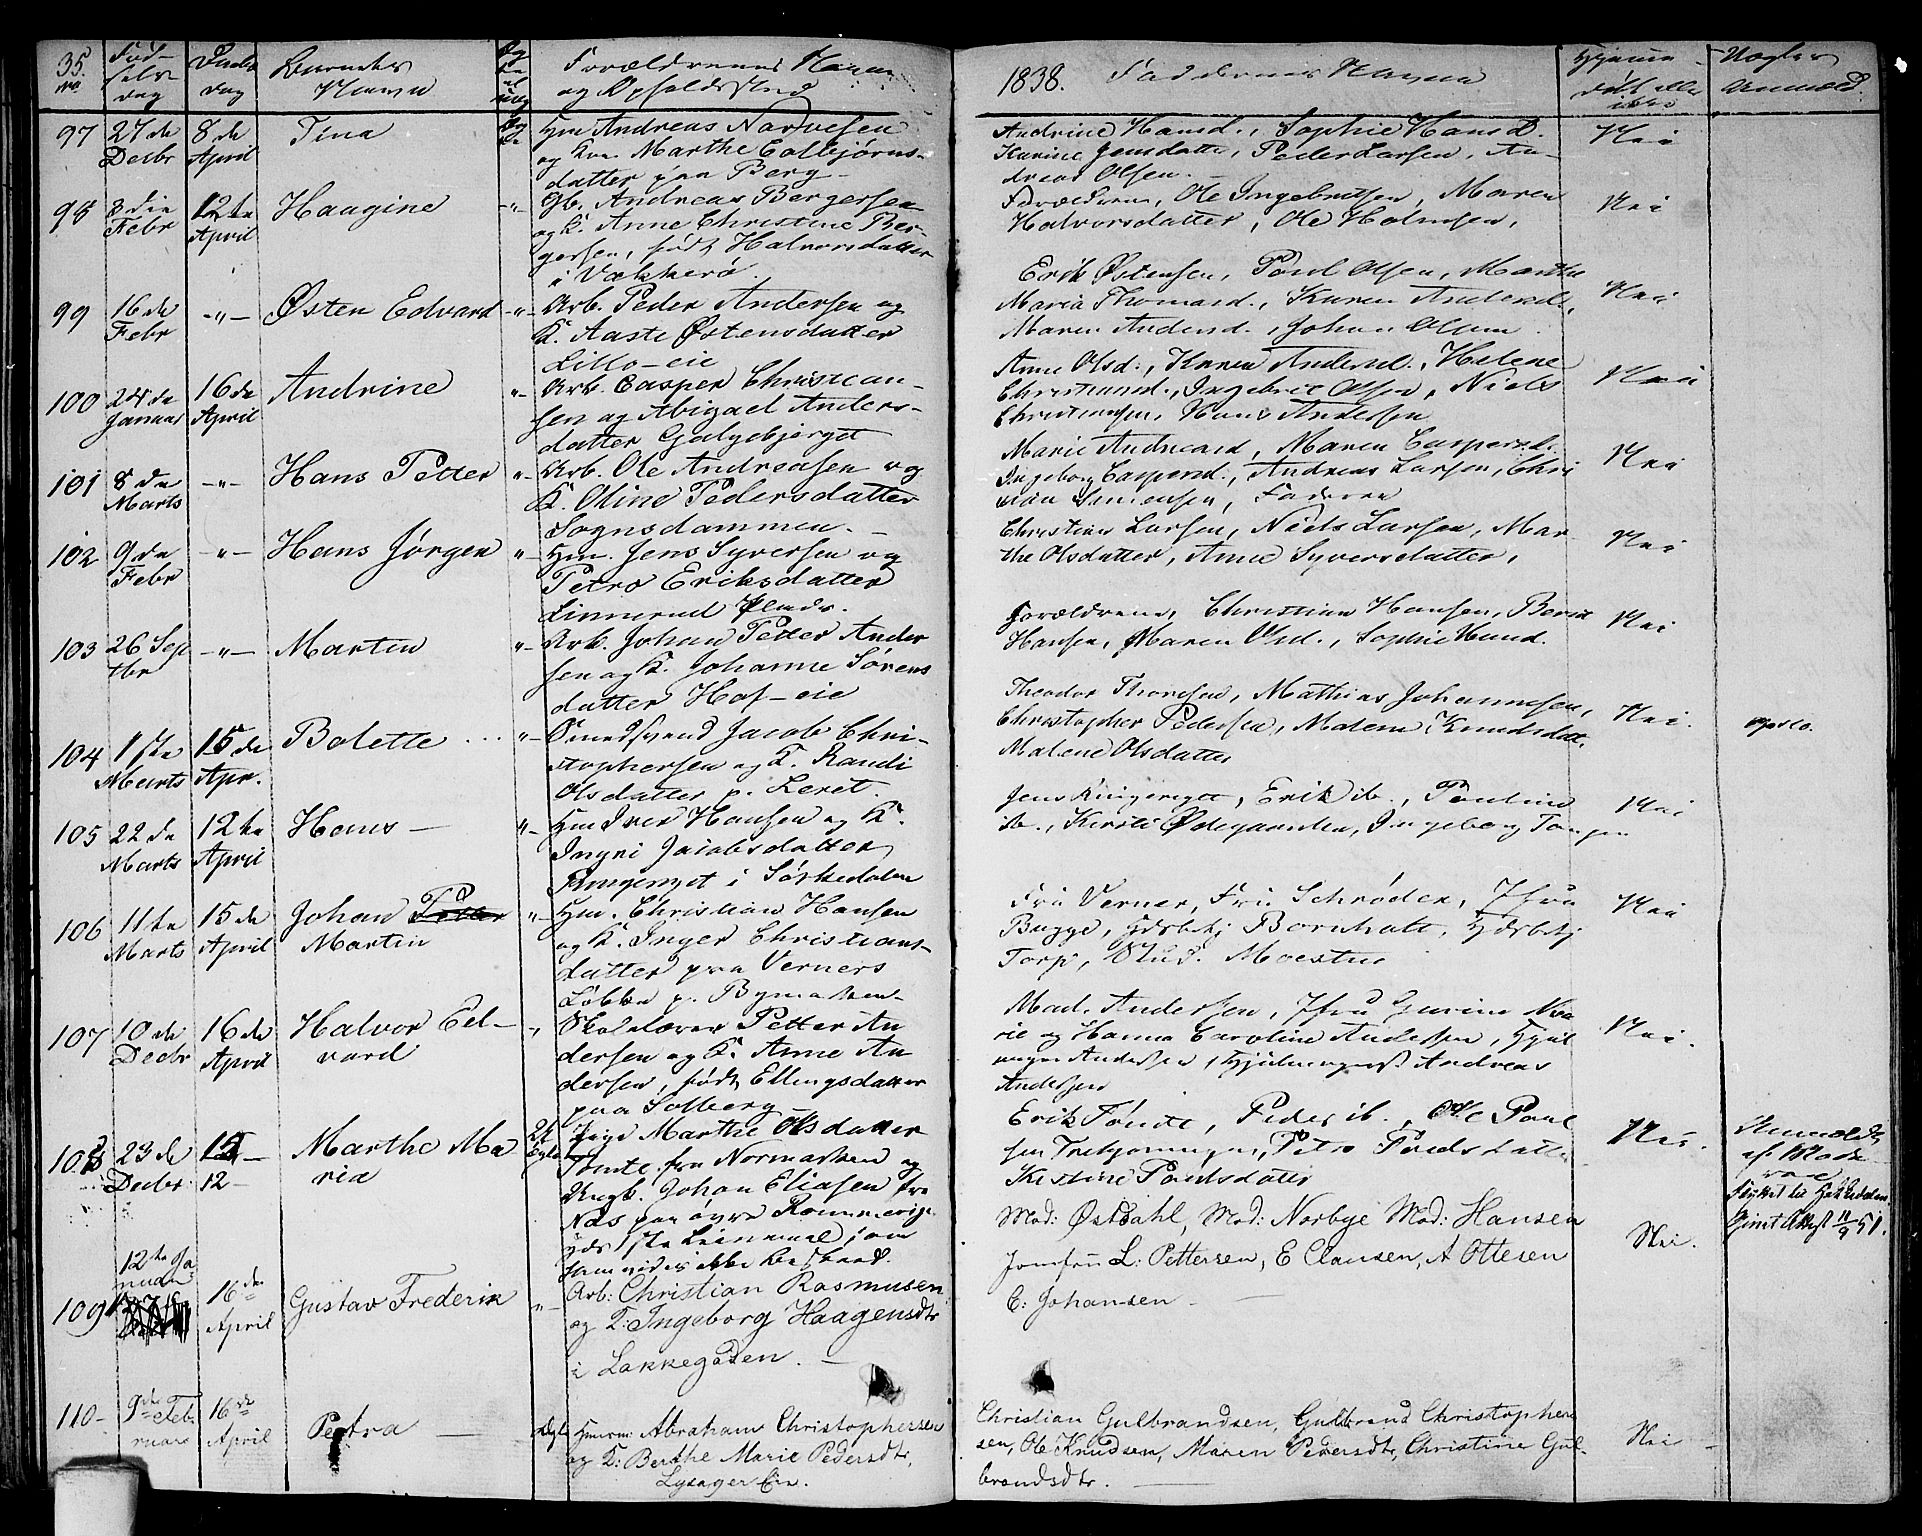 35.
No.
Fød-
sels
dag
Daabs
dag
Barnets
Navn
Æg
te
el.
uæg
Forældrenes Navn
og Opholdssted
1838. Faddernes Navne
Hjemme-
døbt eller
ikke
Nogle
Anmæld.
97
27de
Decbr
8de
April
Tina
Æg
te
Hm Andreas Narvesen
og Kone Marthe Colbjørns-
datter paa Berg
Andrine Hansd., Sophie Hansd.
Karine Jensdatter, Peder Larsen, An-
dreas Olsen.
Nei
98
3die
Febr
12te
April
Haagine
-"-
Gb. Andreas Bergersen
og K. Anne Christine Ber-
gersen, født Halvorsdatter
i Vækkerø.
Forældrene, Ole Ingebretsen, Maren
Halvorsdatter, Ole Holmsen,
Nei
99
16de
Febr
-"-
Østen Edvard
-"-
Arb. Peder Andersen og
K. Aaste Østensdatter
Lillo-eie
Erik Østensen, Poul Olsen, Marthe
Maria Thomasd., Karen Andersd.,
Maren Andersd., Johan Olsen.
Nei
100
24de
Januar
16de
April
Andrine
"-
Arb. Casper Christian-
sen og Abigael Anders-
datter Galgebjerget
Anne Olsd., Karen Andersd., Helene
Christiansd., Ingebret Olsen, Niels
Christiansen, Hans Andersen
Nei
101
8de
Marts
-"-
Hans Petter
"-
Arb. Ole Andreasen og
K. Oline Pedersdatter
Sognsdammen.
Marie Andreasd., Maren Caspersd.
Ingeborg Caspersd., Andreas Larsen, Chri
stian Simensen, Faderen
Nei
102
9de
Febr
-"-
Hans Jørgen
"-
Hm. Jens Syversen og
Petro Eriksdatter
Linnerud Plads.
Christian Larsen, Niels Larsen, Mar
the Olsdatter, Anne Syversdatter,
Nei
103
26 Sep
tbr
-"-
Martin
"-
Arb. Johan Petter Ander
sen og K. Johanne Sørens
datter Hof-eie
Forældrene, Christian Hansen, Berit
Hansen, Maren Olsd., Sophie Hansd.
Nei
104
1ste
Marts
15de
Apr.
Bolette
"-
Smedsvend Jacob Chri-
stophersen og K. Randi
Olsdatter p. Leret.
Theodor Thoresen, Mathias Johannesen,
Christopher Pedersen, Malene Knudsdatt.
Malene Olsdatter
Nei.
Opslo.
105
22de
Marts
12te
April
Hans -
"-
Hm Iver Hansen og K.
Ingri Jacobsdatter
Ringeriget i Sørkedalen
Jens Ringeriget, Erik ib., Pauline
ib., Kirsti Ødegaarden, Ingeborg Tangen
Nei
106
11te
Marts
15de
April
Johan Petter
Martin
"-
Hm. Christian Hansen
og K. Inger Christians-
datter paa Verners
Løkke p. Bymarken-
Fru Verner, Fru Schrøder, Jfru
Bugge, Hdsbetj Bornholt, Hdsbetj
Torp, Stud. Moestue
Nei
107
10de
Decbr
16de
April
Halvor Ed-
vard
"
Skolelærer Petter An
dersen og K. Anne An
dersen, født Ellingsdatter
paa Solberg
Mad. Andersen, Jfru Gurine Ma
rie og Hanna Caroline Andersen, Hjul
mager Andersen, Hjulmagersv. Andreas
Andersen
Nei.
108
23de
Decbr.
15 -
12 -
Marthe Ma
ria
Uægte
Pige Marthe Olsdatter
Tømte fra Normarken og
Ungk. Johan Eliasen fra
Næs paa øvre Romerige
hds 1ste Leiermaal som
ham vides ikke besvaret.
Erik Tømte, Peder ib., Ole Poul
sen Trehjørningen, Petro Poulsdatter
Kirstine Poulsdatter
Nei.
Flyttet til Hakkedalen
Givet Attest 11/9 51.
109
12te Ja
nuar
16de
April
Gustav Frederik
"-
Arb: Christian Rasmusen
og K: Ingeborg Haagensdtr
i Lakkegaden.
Mad: Østdahl, Mad: Norbye Mad: Hansen
Jomfru L: Pettersen, E Clausen, A Ottesen
C: Johansen
Nei.
110-
9de Feb
ruar
16de
April
Petra
Ægte
Huusm: Abraham Christophersen
og K: Berthe Marie Pedersdtr,
Lysager Eie.
Christian Gulbrandsen, Gulbrand Christopher
sen, Ole Knudsen, Maren Pedersdtr, Christine Gul-
brandsdtr.
Nei -